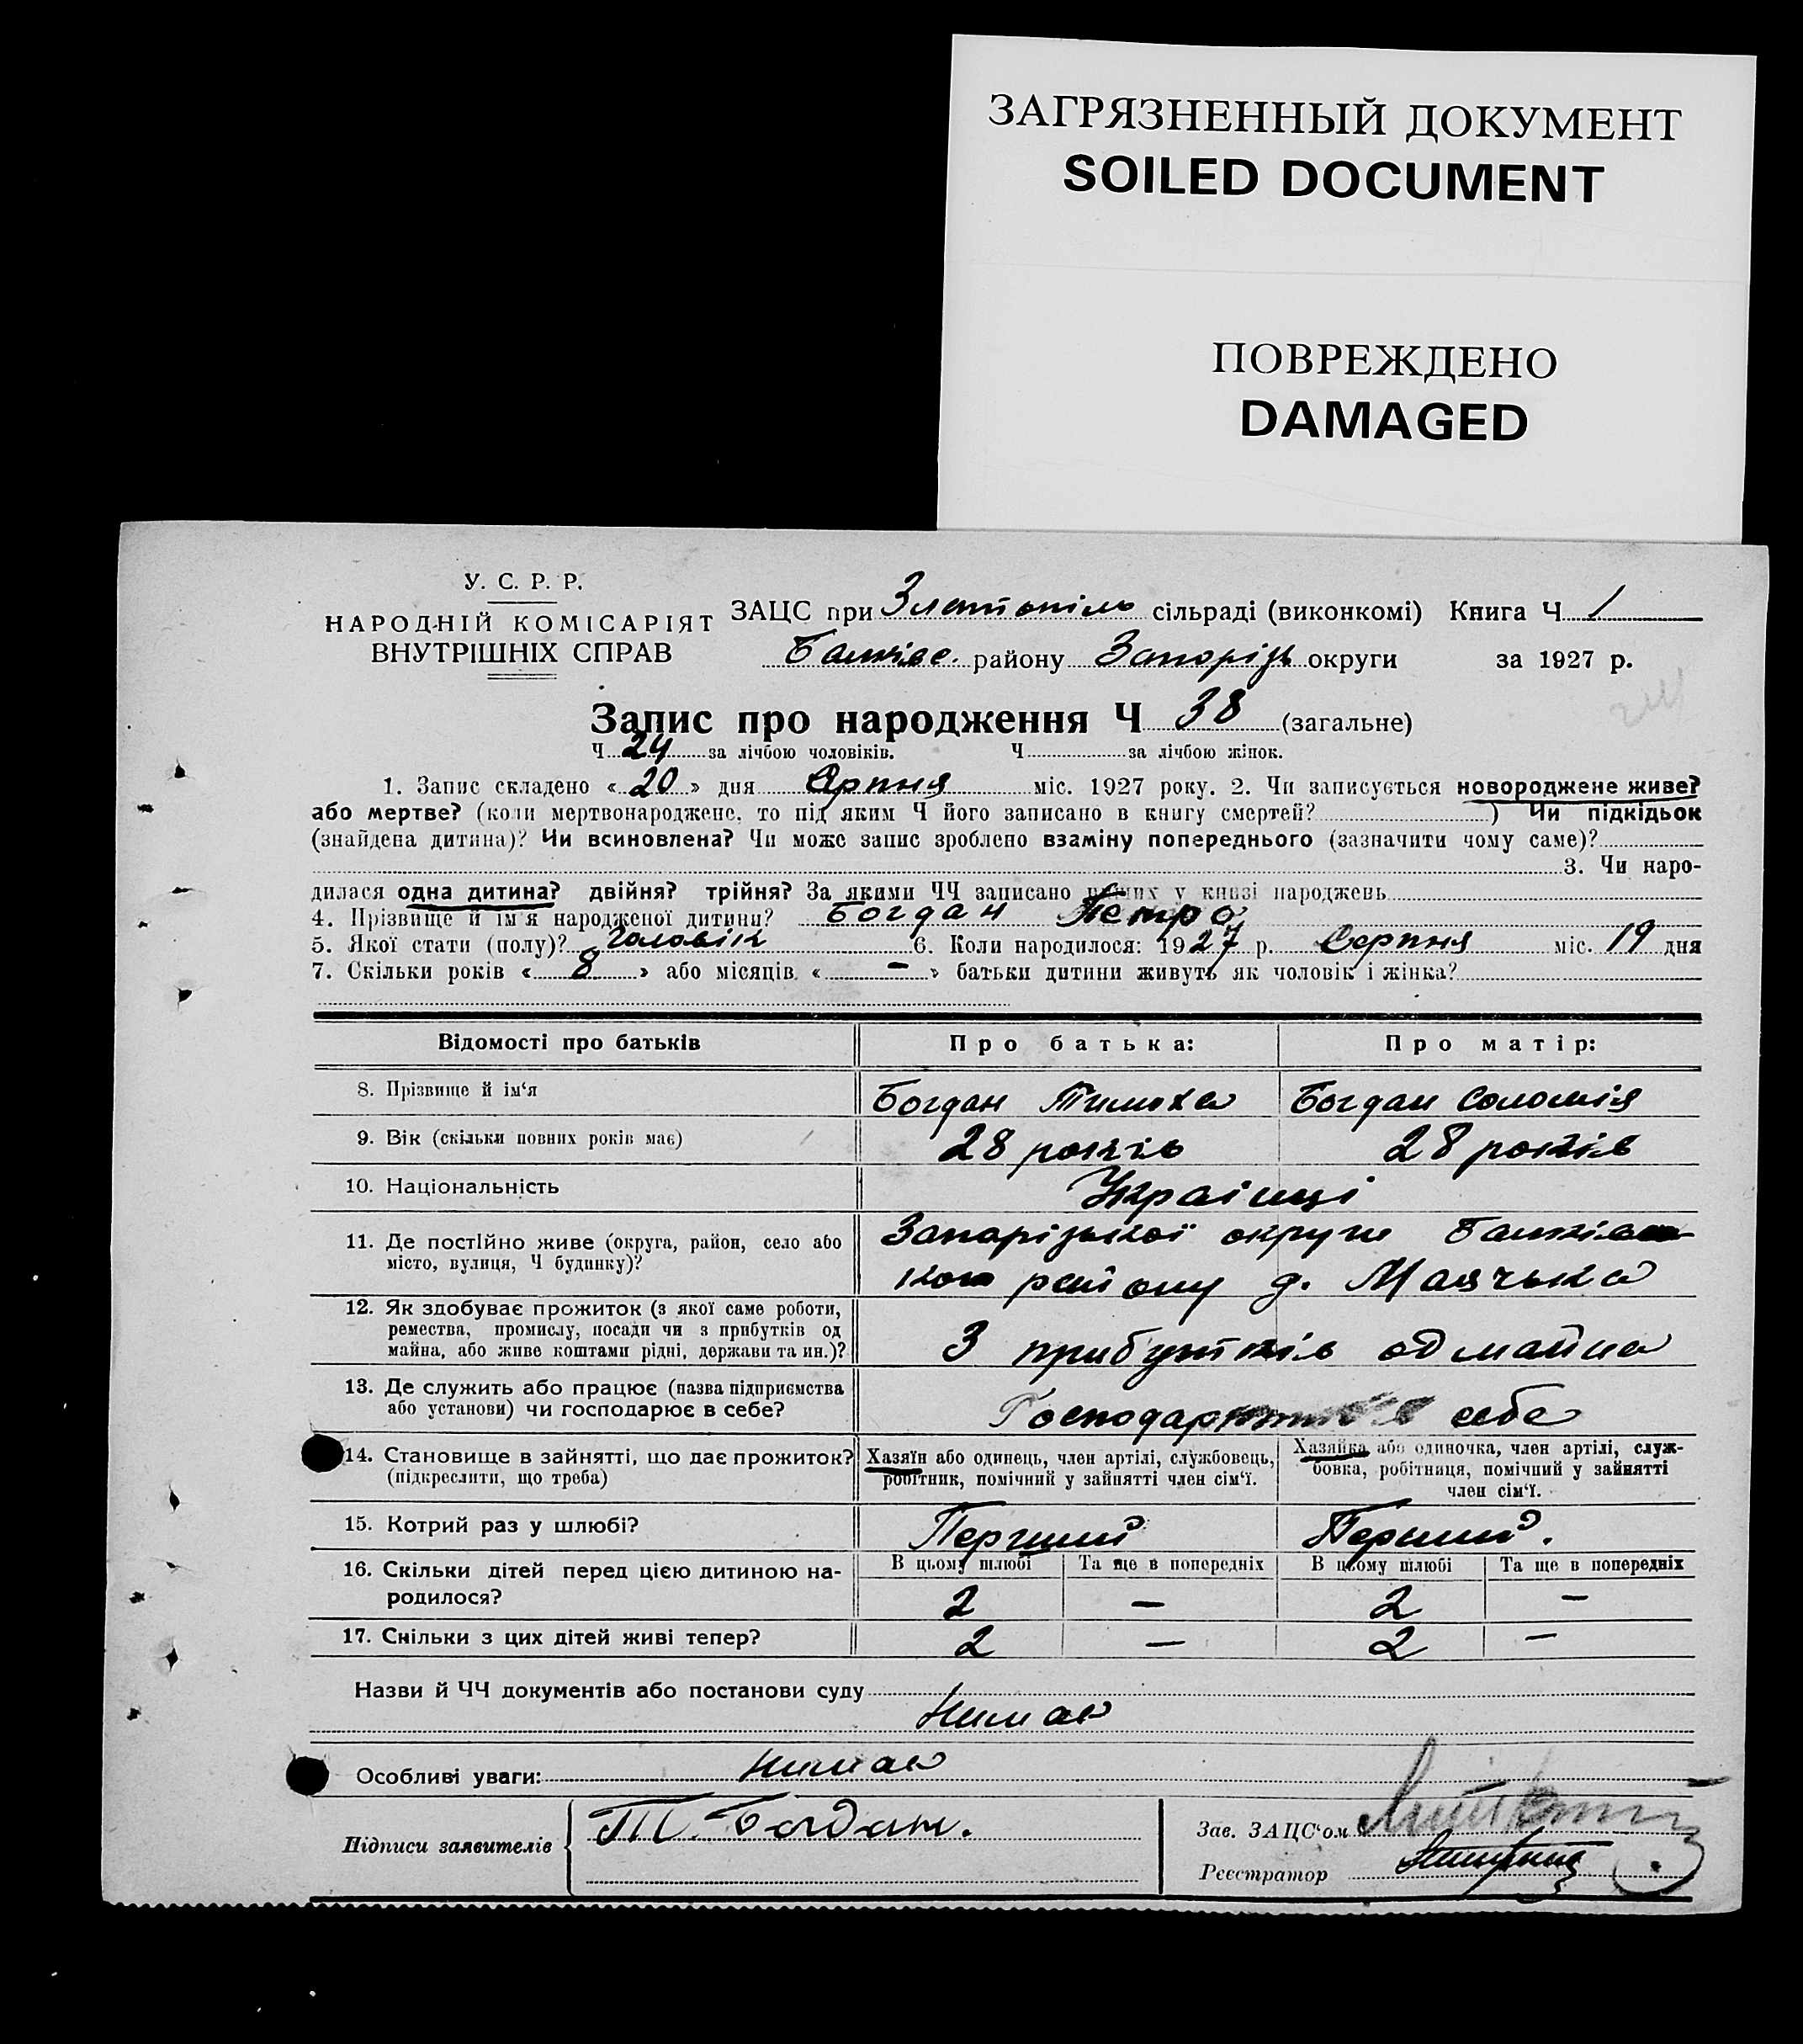 ЗАГРЯЗНЕННЫЙ ДОКУМЕНТ
SOILED DOCUMENT
ПОВРЕЖДЕНО
DAMAGED
У. С. Р. Р.
НАРОДНІЙ КОМІСАРІЯТ
ВНУТРІШНІХ СПРАВ
ЗАЦС при Златопіль сільраді (виконкомі) Книга Ч 1
району Запорізь округи за 1927 р.
Запис про народження Ч 38 (загальне)
Ч 24 за лічбою чоловіків. Ч за лічбою жінок.
1. Запис складено « 20 » дня Серпня міс. 1927 року. 2. Чи записується новороджене живе?
або мертве? (коли мертвонароджене, то під яким Ч його записано в книгу смертей? ) Чи підкідьок
(знайдена дитина)? Чи всиновлена? Чи може запис зроблено взаміну попереднього (зазначити чому саме)?
3. Чи наро-
дилася одна дитина? двійня? трійня? За якими ЧЧ записано инших у книзі народжень
4. Прізвище й ім'я народженої дитини? Богдан Петро
5. Якої стати (полу)? Чоловік 6. Коли народилося: 1927 р. Серпня міс. 19 дня
7. Скільки років « 8 » або місяців « — » батьки дитини живуть як чоловік і жінка?
Відомості про батьків Про батька: Про матір:
8. Прізвище й ім'я Богдан Тимоха Богдан Соломія
9. Вік (скільки повних років має) 28 років 28 років
10. Національність Украінці
11. Де постійно живе (округа, район, село або Запорізької округи
місто, вулиця, Ч будинку)? району д. Маячька
12. Як здобуває прожиток (з якої саме роботи,
ремества, промислу, посади чи з прибутків од
майна, або живе коштами рідні, держави та ин.)? З прибутків од майна
13. Де служить або працює (назва підприємства
або установи) чи господарює в себе? себе
14. Становище в зайнятті, що дає прожиток? Хазяїн або одинець, член артілі, службовець, Хазяйка або одиночка, член артілі, служ-
(підкреслити, що треба) робітник, помічний у зайнятті член сім'ї. бовка, робітниця, помічний у зайнятті
член сім'ї.
15. Котрий раз у шлюбі? Перший Перший.
16. Скільки дітей перед цією дитиною на- В цьому шлюбі Та ще в попередніх В цьому шлюбі Та ще в попередніх
родилося? 2 — 2 —
17. Скільки з цих дітей живі тепер? 2 — 2 —
Назви й ЧЧ документів або постанови суду
Нимає
Особливі уваги: нимає
Підписи заявителів Т. Богдан.
Зав. ЗАЦС'ом
Реєстратор